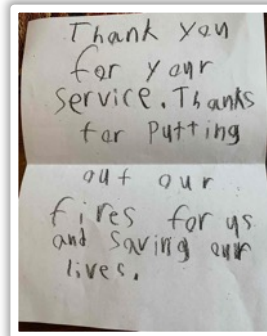 Thank you
for your
service. Thanks
for Putting
out our
fires for us
and saving our
lives.